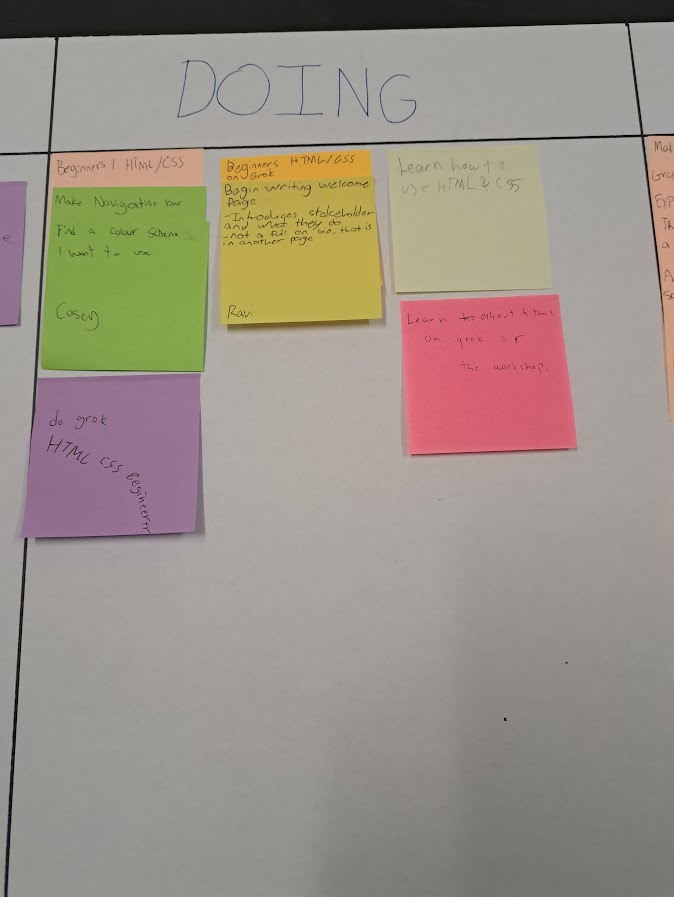 DOING
Beginners 1 HTML/CSS
Make Navigation bar
Find a colour scheme
I want to use
Casey
do grok
HTML CSS Begineerer
Beginners HTML/CSS
on Grok
Begin Writing Welcome
Page
-Introduces stakeholder
and what they do
-not a full on bio, that is
in another page
Ravi
Learn how to
use HTML & CSS
Learn about html
on grok or
the workshop.
e
Mak
Grok
Exp
a
A